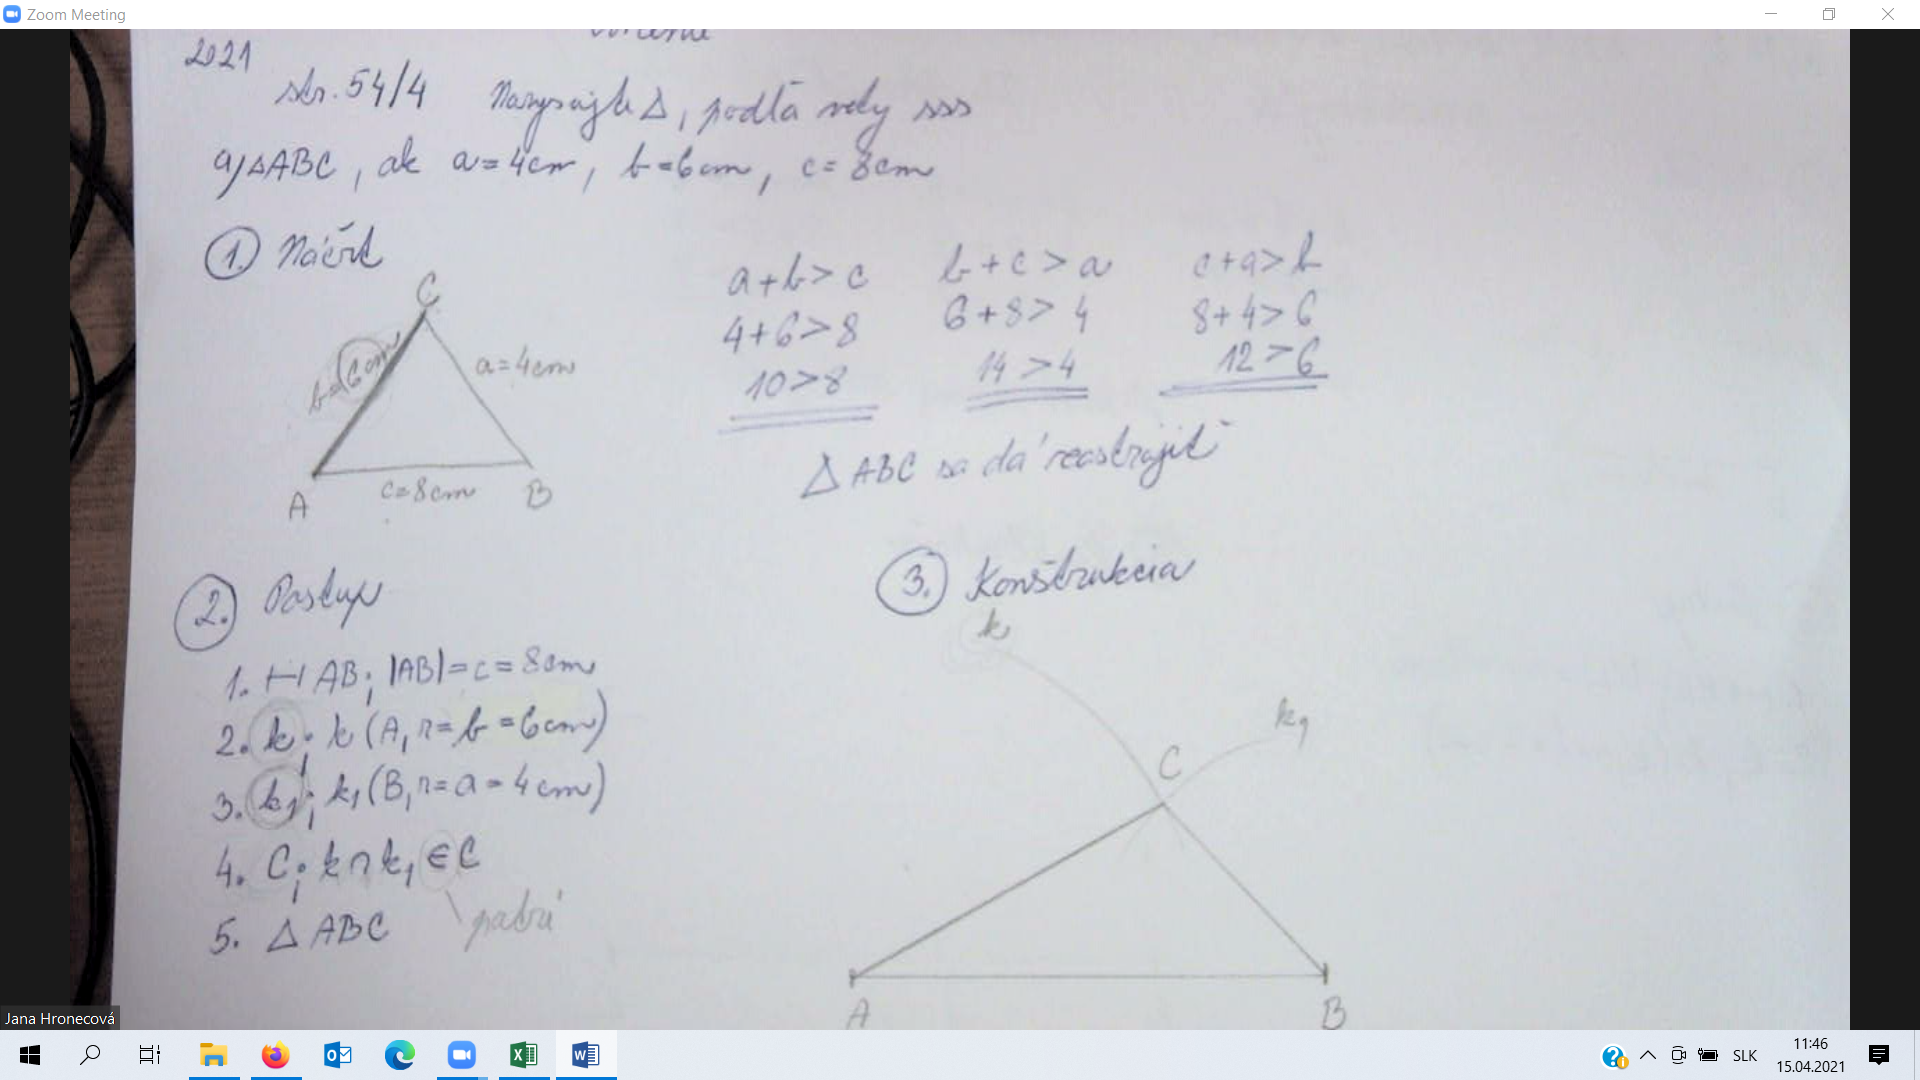 Zoom Meeting
2021
str. 54/4 Narysujte △, podľa vety sss
a) △ABC, ak a = 4cm, b = 6cm, c = 8cm
1. Náčrt
C
b = 6cm
a = 4cm
A
c = 8cm
B
a + b > c
4 + 6 > 8
10 > 8
b + c > a
6 + 8 > 4
14 > 4
c + a > b
8 + 4 > 6
12 > 6
△ ABC sa dá
2. Postup
1. AB; |AB| = c = 8cm
2. k; k (A, r = b = 6cm)
3. k₁; k₁ (B, r = a = 4cm)
4. C; k ∩ k₁ ∈ C
patrí
5. △ ABC
3. Konštrukcia
k
k₁
C
A
B
Jana Hronecová
SLK
11:46
15.04.2021